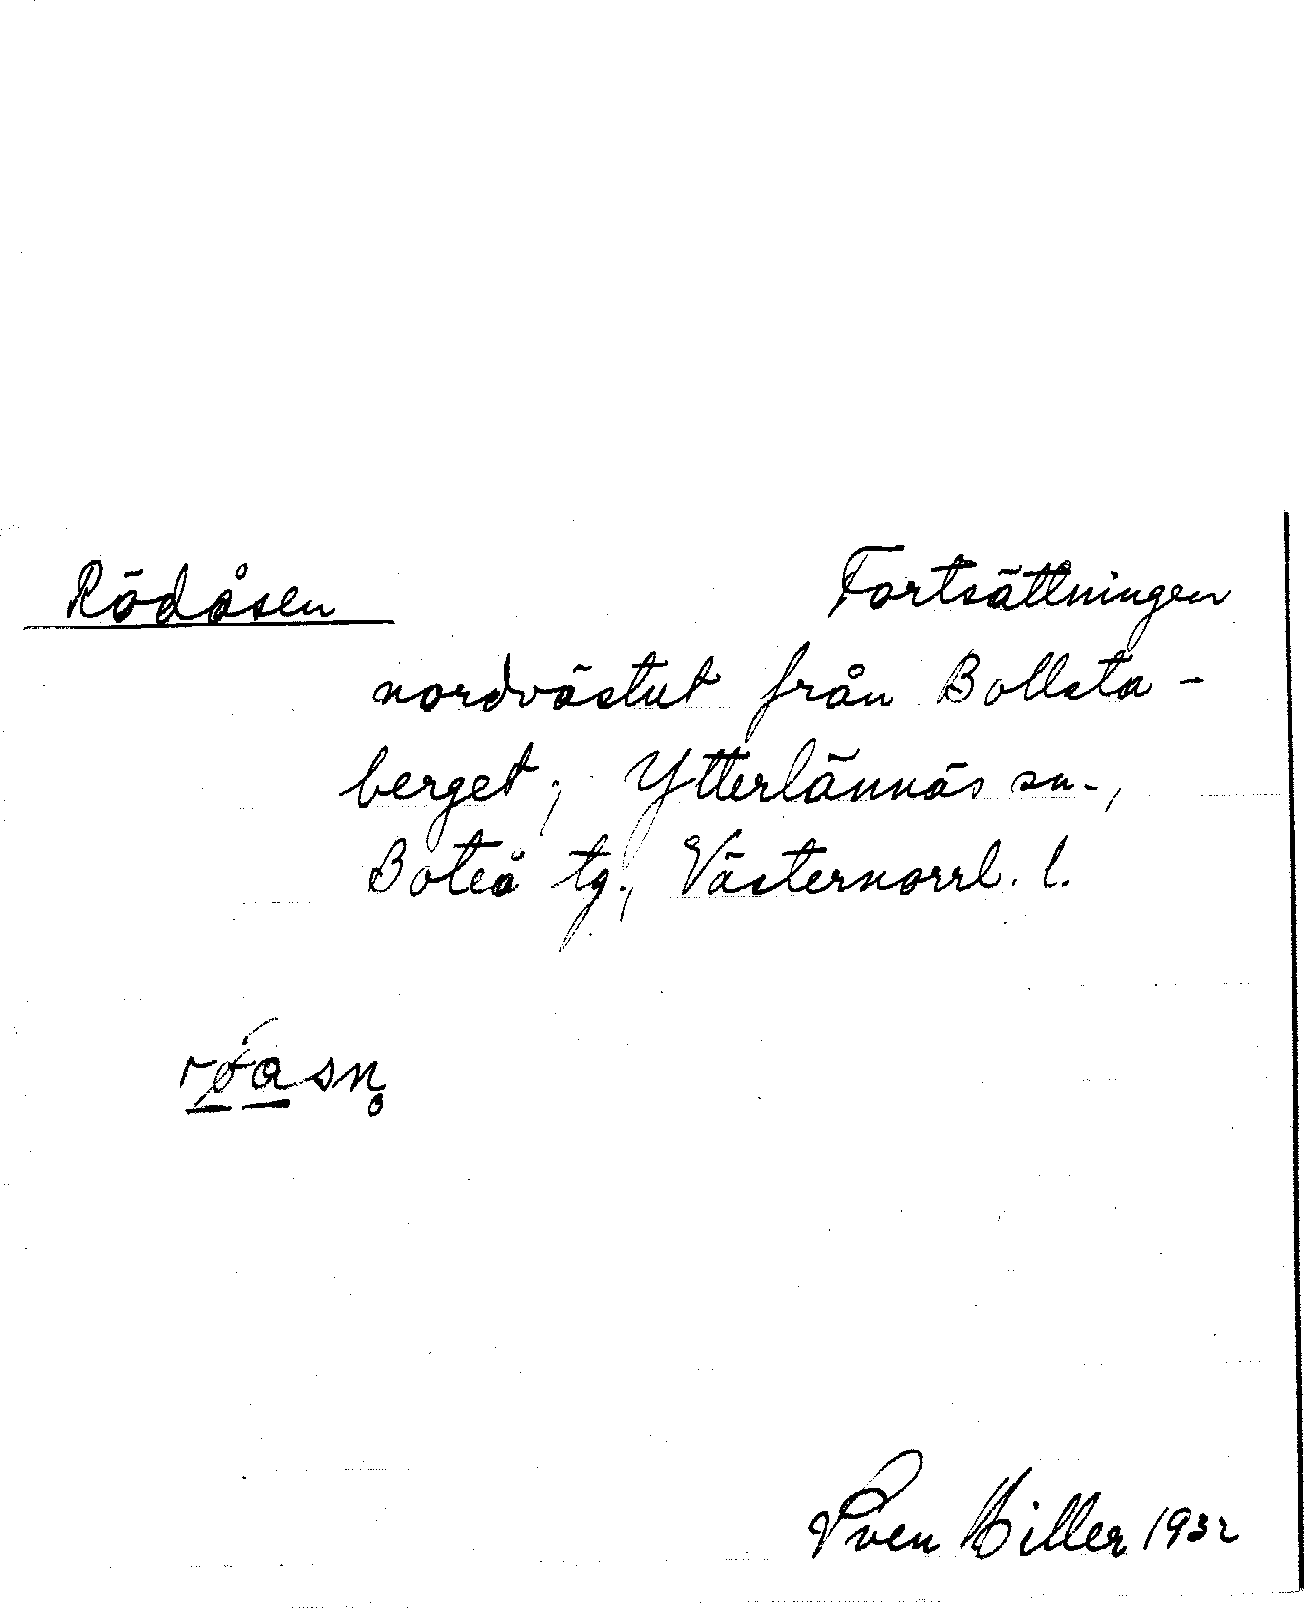 Rödåsen Fortsättningen
nordvästut från Bollsta-
berget; Ytterlännäs sn.,
Boteå tg., Västernorrl. l.
rø̲a̲sn̥
Sven Hiller 1932